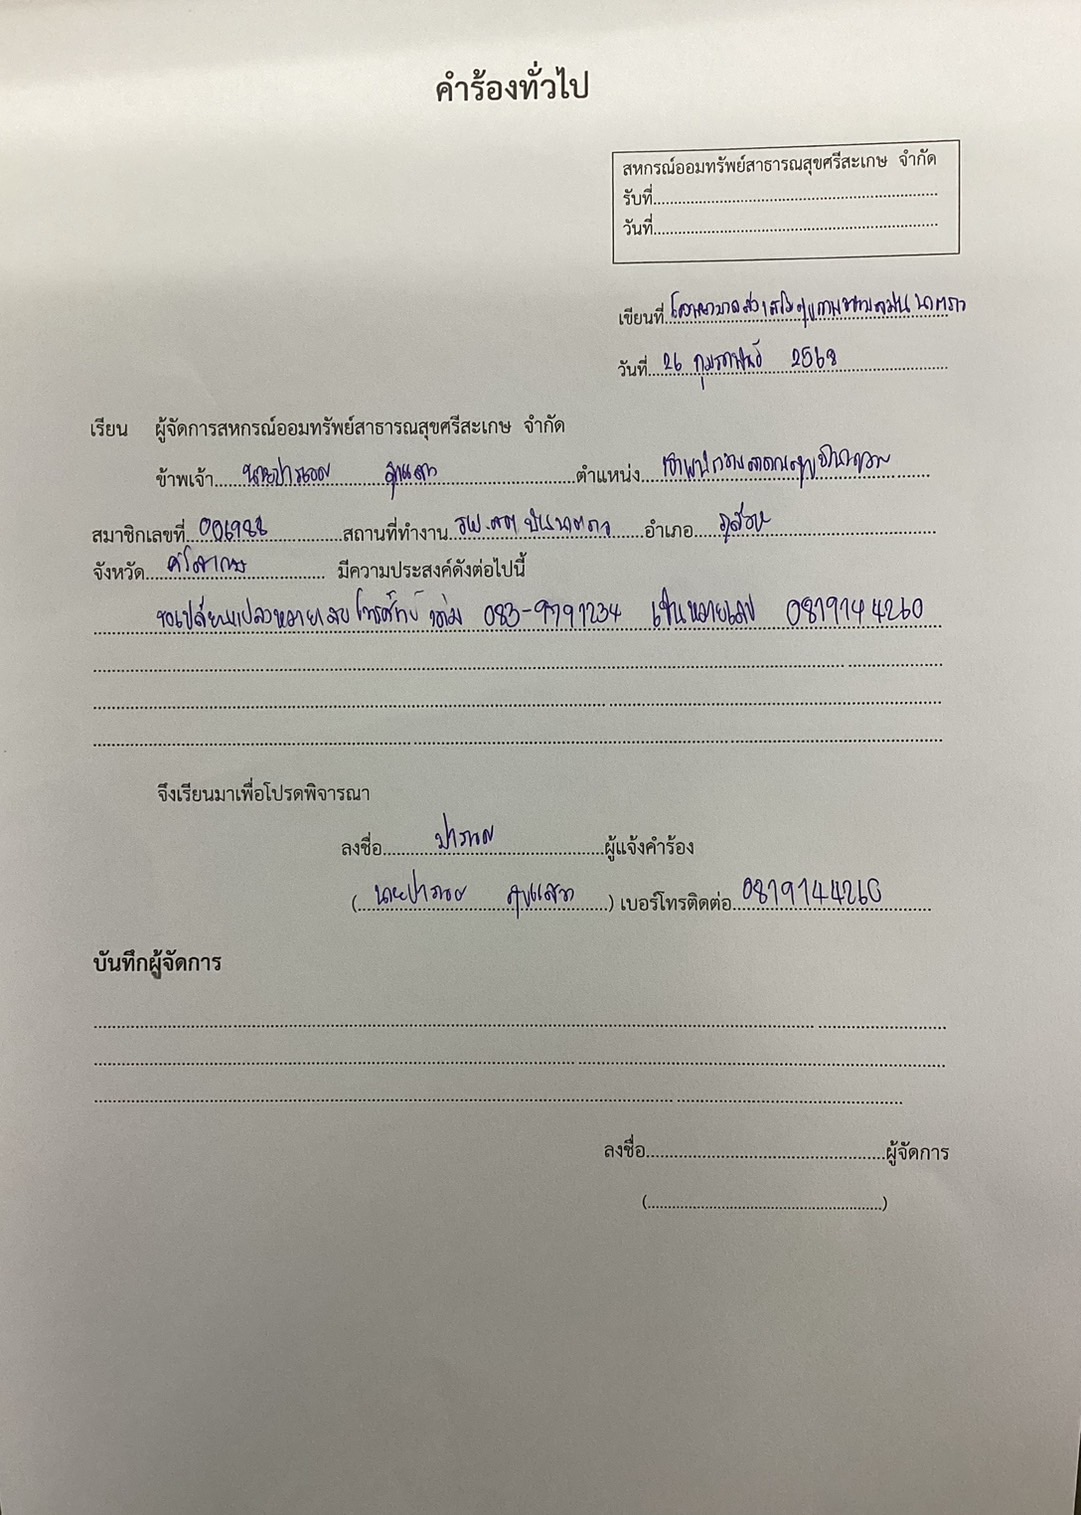 คำร้องทั่วไป
สหกรณ์ออมทรัพย์สาธารณสุขศรีสะเกษ จำกัด
รับที่
วันที่
เขียนที่ โรงพยาบาลส่งเสริมสุขภาพตำบล นาตราว
วันที่ 26 กุมภาพันธ์ 2568
เรียน ผู้จัดการสหกรณ์ออมทรัพย์สาธารณสุขศรีสะเกษ จำกัด
ข้าพเจ้า ตำแหน่ง เจ้าพนักงานสาธารณสุขชำนาญงาน
สมาชิกเลขที่ 006988 สถานที่ทำงาน รพ.สต บ้านนาตราว อำเภอ ภูสิงห์
จังหวัด ศรีสะเกษ มีความประสงค์ดังต่อไปนี้
ขอเปลี่ยนแปลงหมายเลขโทรศัพท์ เดิม 083-9791234 เป็นหมายเลข 0819144260
จึงเรียนมาเพื่อโปรดพิจารณา
ลงชื่อ ผู้แจ้งคำร้อง
( ) เบอร์โทรติดต่อ 0819144260
บันทึกผู้จัดการ
ลงชื่อ ผู้จัดการ
( )